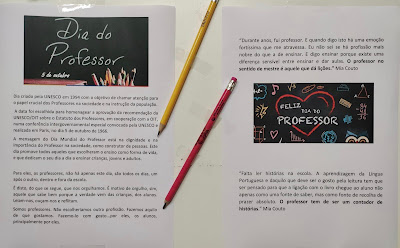 Dia do
Professor
5 de outubro
Dia criado pela UNESCO em 1994 com o objetivo de chamar atenção para
o papel crucial dos Professores na sociedade e na instrução da população.
A data foi escolhida para homenagear a aprovação da recomendação da
UNESCO/OIT sobre o Estatuto dos Professores, em cooperação com a OIT,
numa conferência intergovernamental especial convocada pela UNESCO e
realizada em Paris, no dia 5 de outubro de 1966.
A mensagem do Dia Mundial do Professor está na dignidade e na
importância do Professor na sociedade, como construtor da pessoas. Este
dia promove todos aqueles que escolheram o ensino como forma de vida,
e que dedicam o seu dia a dia a ensinar crianças, jovens e adultos.
Para eles, os professores, não há apenas este dia, são todos os dias, um
após o outro, dentro e fora da escola.
É disto, do que se segue, que nos orgulhamos. É motivo de orgulho, sim,
aquele que sabe bem porque a verdade vem das crianças, dos alunos;
leiam-nos, ouçam-nos e reflitam.
Somos professores. Não escolheríamos outra profissão. Fazemos aquilo
de que gostamos. Fazemo-lo com gosto—por eles, os alunos,
principalmente por eles.
"Durante anos, fui professor. E quando digo isto há uma emoção
fortíssima que me atravessa. Eu não sei se há profissão mais
nobre do que a de ensinar. E digo ensinar porque existe uma
diferença sensível entre ensinar e dar aulas. O professor no
sentido de mestre é aquele que dá lições." Mia Couto
FELIZ
DIA DO
PROFESSOR
"Falta ler histórias na escola. A aprendizagem da Língua
Portuguesa e daquilo que deve ser o gosto pela leitura tem que
ser pensado para que a ligação com o livro chegue ao aluno não
apenas como uma fonte de saber, mas como fonte de recolha de
prazer absoluto. O professor tem de ser um contador de
histórias." Mia Couto